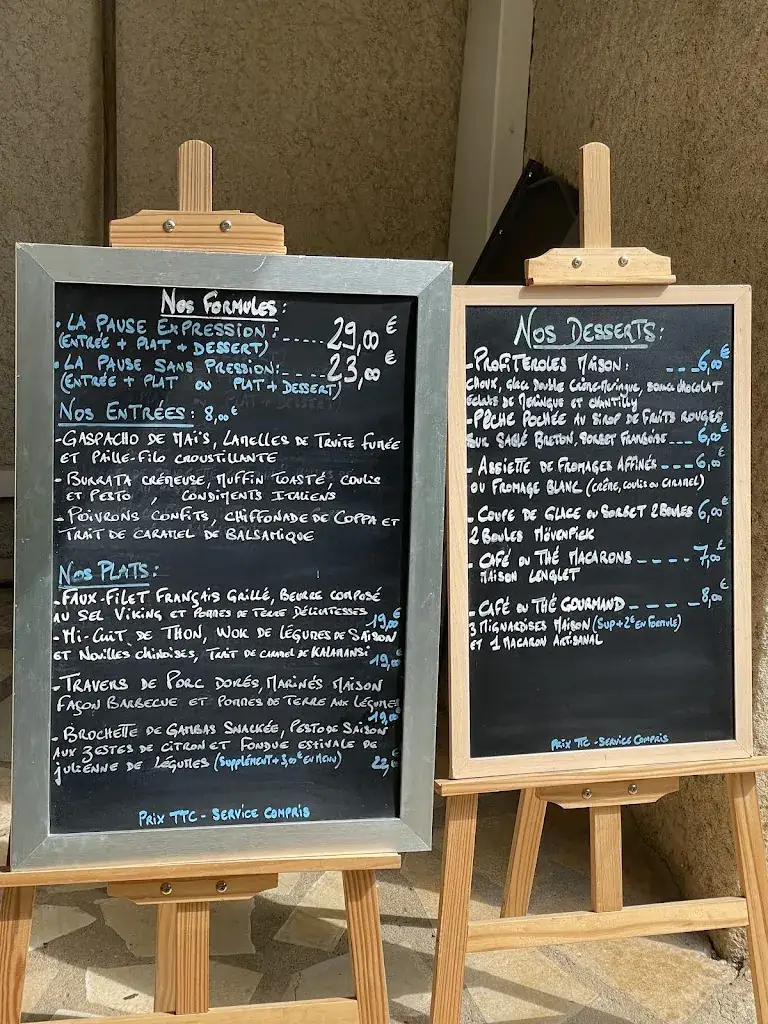 Nos Formules :
. LA PAUSE EXPRESSION : ---- 29,00 €
(ENTRÉE + PLAT + DESSERT)
. LA PAUSE SANS PRESSION : ---- 23,00 €
(ENTRÉE + PLAT OU PLAT + DESSERT)
Nos ENTRÉES : 8,00€
- GASPACHO DE MAÏS, LAMELLES DE TRUITE FUMÉE
ET PAILLE-FILO CROUSTILLANTE
- BURRATA CRÉMEUSE, MUFFIN TOASTÉ, COULIS
ET PESTO , CONDIMENTS ITALIENS
- POIVRONS CONFITS, CHIFFONADE DE COPPA ET
TRAIT DE CARAMEL DE BALSAMIQUE
Nos PLATS :
- FAUX-FILET FRANÇAIS GRILLÉ, BEURRE COMPOSÉ
AU SEL VIKING ET POMMES DE TERRE DÉLICATESSES
19,00€
- MI-CUIT DE THON, WOK DE LÉGUMES DE SAISON
ET NOUILLES CHINOISES, TRAIT DE CARAMEL DE KALAMANSI
19,00€
- TRAVERS DE PORC DORÉS, MARINÉS MAISON
FAÇON BARBECUE ET POMMES DE TERRE AUX LÉGUMES
19,00€
- BROCHETTE DE GAMBAS SNACKÉE, PESTO DE SAISON
AUX ZESTES DE CITRON ET FONDUE ESTIVALE DE
JULIENNE DE LÉGUMES (SUPPLÉMENT + 3,00€ EN MENU) 22,00€
PRIX TTC - SERVICE COMPRIS
Nos DESSERTS :
- PROFITEROLES MAISON : --- 6,00€
CHOUX, GLACE DOUBLE CRÈME-MERINGUE, SAUCE CHOCOLAT
ÉCLATS DE MERINGUE ET CHANTILLY
- PÊCHE POCHÉE AU SIROP DE FRUITS ROUGES
SUR SABLÉ BRETON, SORBET FRAMBOISE --- 6,00€
- ASSIETTE DE FROMAGES AFFINÉS --- 6,00€
OU FROMAGE BLANC (CRÈME, COULIS OU CARAMEL)
- COUPE DE GLACE OU SORBET 2 BOULES 6,00€
2 BOULES MÖVENPICK
- CAFÉ OU THÉ MACARONS ----- 7,00€
MAISON LENGLET
- CAFÉ OU THÉ GOURMAND ----- 8,00€
3 MIGNARDISES MAISON (SUP + 2€ EN FORMULE)
ET 1 MACARON ARTISANAL
PRIX TTC - SERVICE COMPRIS